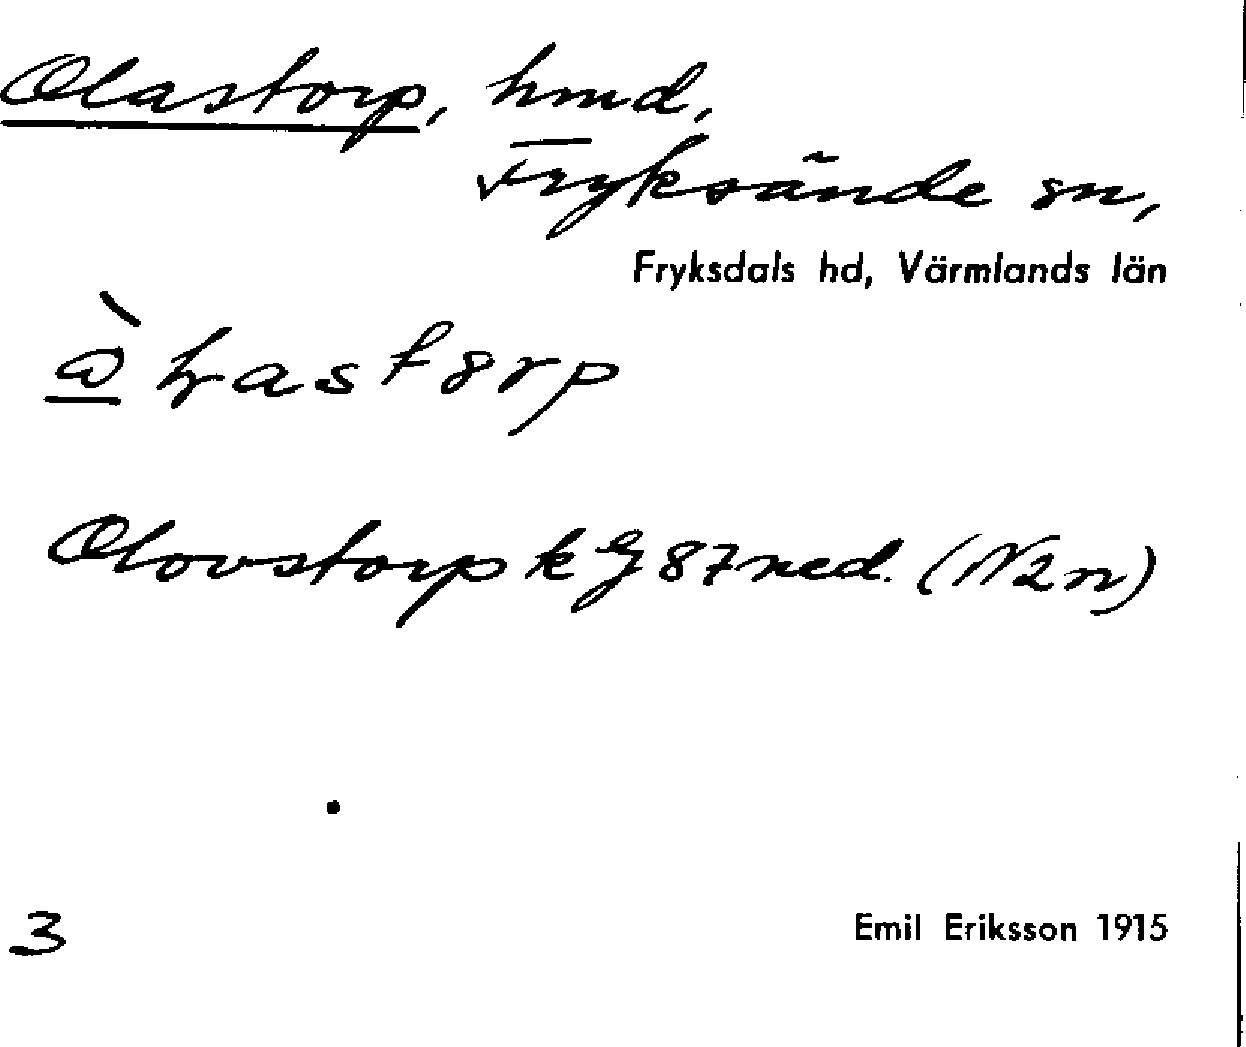 Olastorp, hmd,
Fryksände sn,
Fryksdals hd, Värmlands län
Olovstorp k G 87 ned. (N2n)
3
Emil Eriksson 1915